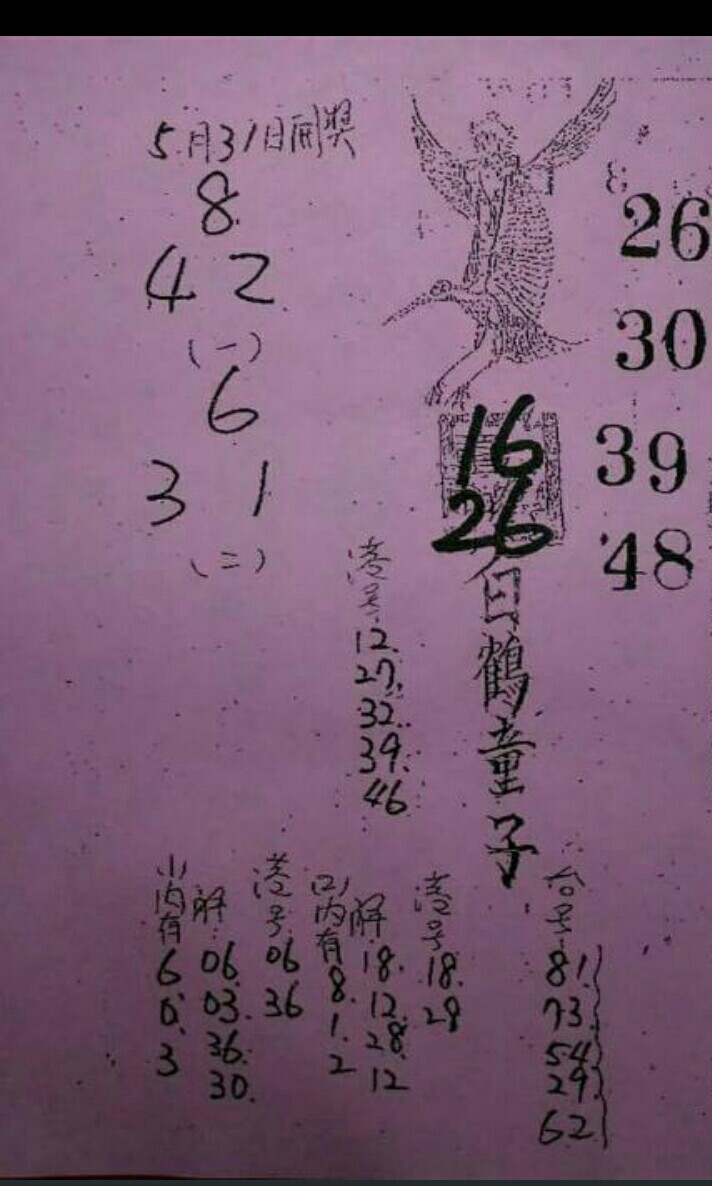 5月31日開獎
8
4 2
(一)
6
3 1
(二)
26
30
39
48
16
26
白鶴童子
港号
12.
27.
32.
39.
46
(1)内有
6
0.
3
解:
06.
03.
36.
30.
港号
06
36
(2)内有
8.
1.
2
解.
18.
12.
28.
12
港号
18.
28
台号
81.
73.
54
29.
62